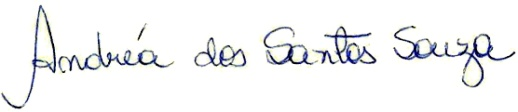 Andréa dos Santos Souza